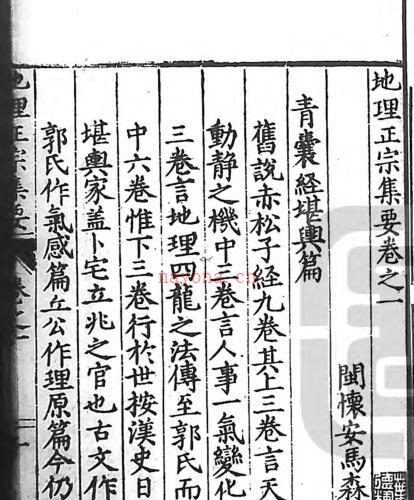 地理正宗集要卷之一
閩懷安馬森
青囊經堪輿篇
舊說赤松子經九卷其上三卷言天
動靜之機中三卷言人事一氣變化
三卷言地理四龍之法傳至郭氏而
中六卷惟下三卷行於世按漢史日
堪輿家盖卜宅立兆之官也古文作
郭氏作氣感篇丘公作理原篇今仍
地理正宗集要
卷之一
nayona.cn